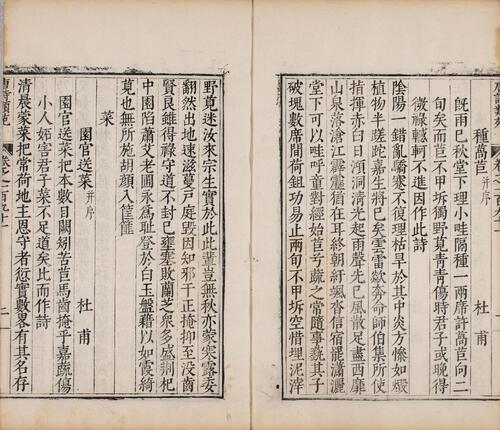 種萵苣 并序
既雨已秋堂下理小畦隔種一兩席許萵苣向二
旬矣而苣不甲坼獨野莧青青傷時君子或晚得
微祿轗軻不進因作此詩
陰陽一錯亂驕蹇不復理枯旱於其中炎方慘如燬
植物半蹉跎嘉生將已矣雲雷欻奔命師伯集所使
指揮赤白日澒洞青光起雨聲先已風散足盡西靡
山泉落滄江霹靂猶在耳終朝紆颯沓信宿罷瀟灑
堂下可以畦呼童對經始苣兮蔬之常隨事蓺其子
破塊數席間荷鉏功易止兩旬不甲坼空惜埋泥滓
野莧迷汝來宗生實於此此輩豈無秋亦蒙寒露委
翻然出地速滋蔓戶庭毀因知邪干正掩抑至沒齒
賢良雖得祿守道不封已壅塞敗蘭芝衆多盛荆杞
中園陷蕭艾老圃永爲恥登於白玉盤藉以如霞綺
莧也無所施胡顏入筐篚
菜
園官送菜 并序 杜甫
園官送菜把本數日闕矧苦苣馬齒掩乎嘉蔬傷
小人妬害君子菜不足道矣比而作詩
清晨蒙菜把常荷地主恩守者愆實數畧有其名存